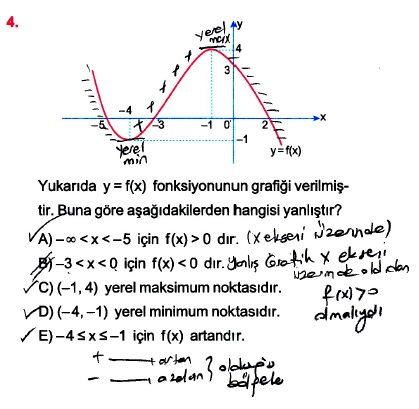 4.
yerel max
y
4
3
-4
-5
-3
-1
2
x
-1
yerel min
y = f(x)
Yukarıda y = f(x) fonksiyonunun grafiği verilmiş-
tir. Buna göre aşağıdakilerden hangisi yanlıştır?
A) -∞ < x < -5 için f(x) > 0 dır. (x ekseni üzerinde)
B) -3 < x < 0 için f(x) < 0 dır. Yanlış Grafik x ekseni
üzerinde olduğundan
f(x) > 0
olmalıydı
C) (-1, 4) yerel maksimum noktasıdır.
D) (-4, -1) yerel minimum noktasıdır.
E) -4 ≤ x ≤ -1 için f(x) artandır.
+ artan
- azalan } olduğu
bölgele